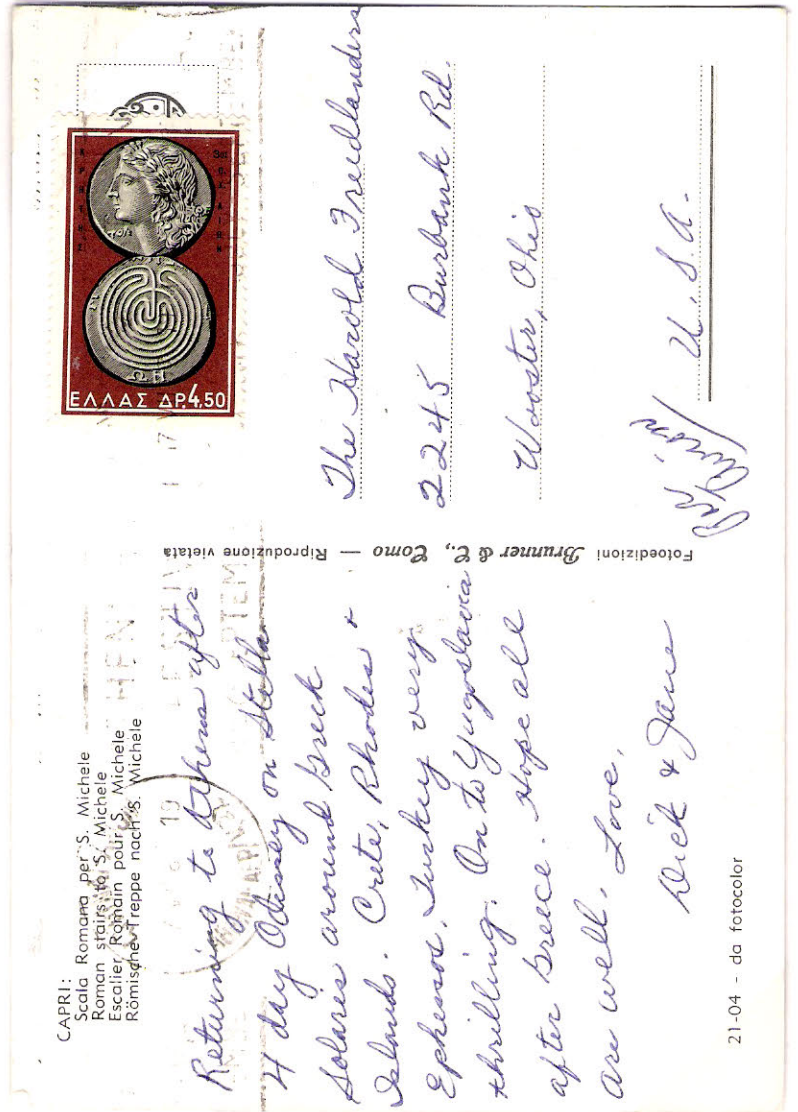 CAPRI:
Scala Romana per S. Michele
Roman stairs to S. Michele
Escalier Romain pour S. Michele
Römische Treppe nach S. Michele
Returning to Athens after
4 day Odissey on Stella
Solaris around Greek
Islands. Crete, Rhodes &
Ephesos, Turkey very
thrilling. On to Yugoslavia
after Greece. Hope all
are well. Love,
Dick & Jane
21-04 - da fotocolor
Fotoedizioni Brunner & C., Como — Riproduzione vietata
ΕΛΛΑΣ ΔΡ. 4,50
The Harold Freedlanders
2245 Burbank Rd.
Wooster, Ohio
U.S.A.